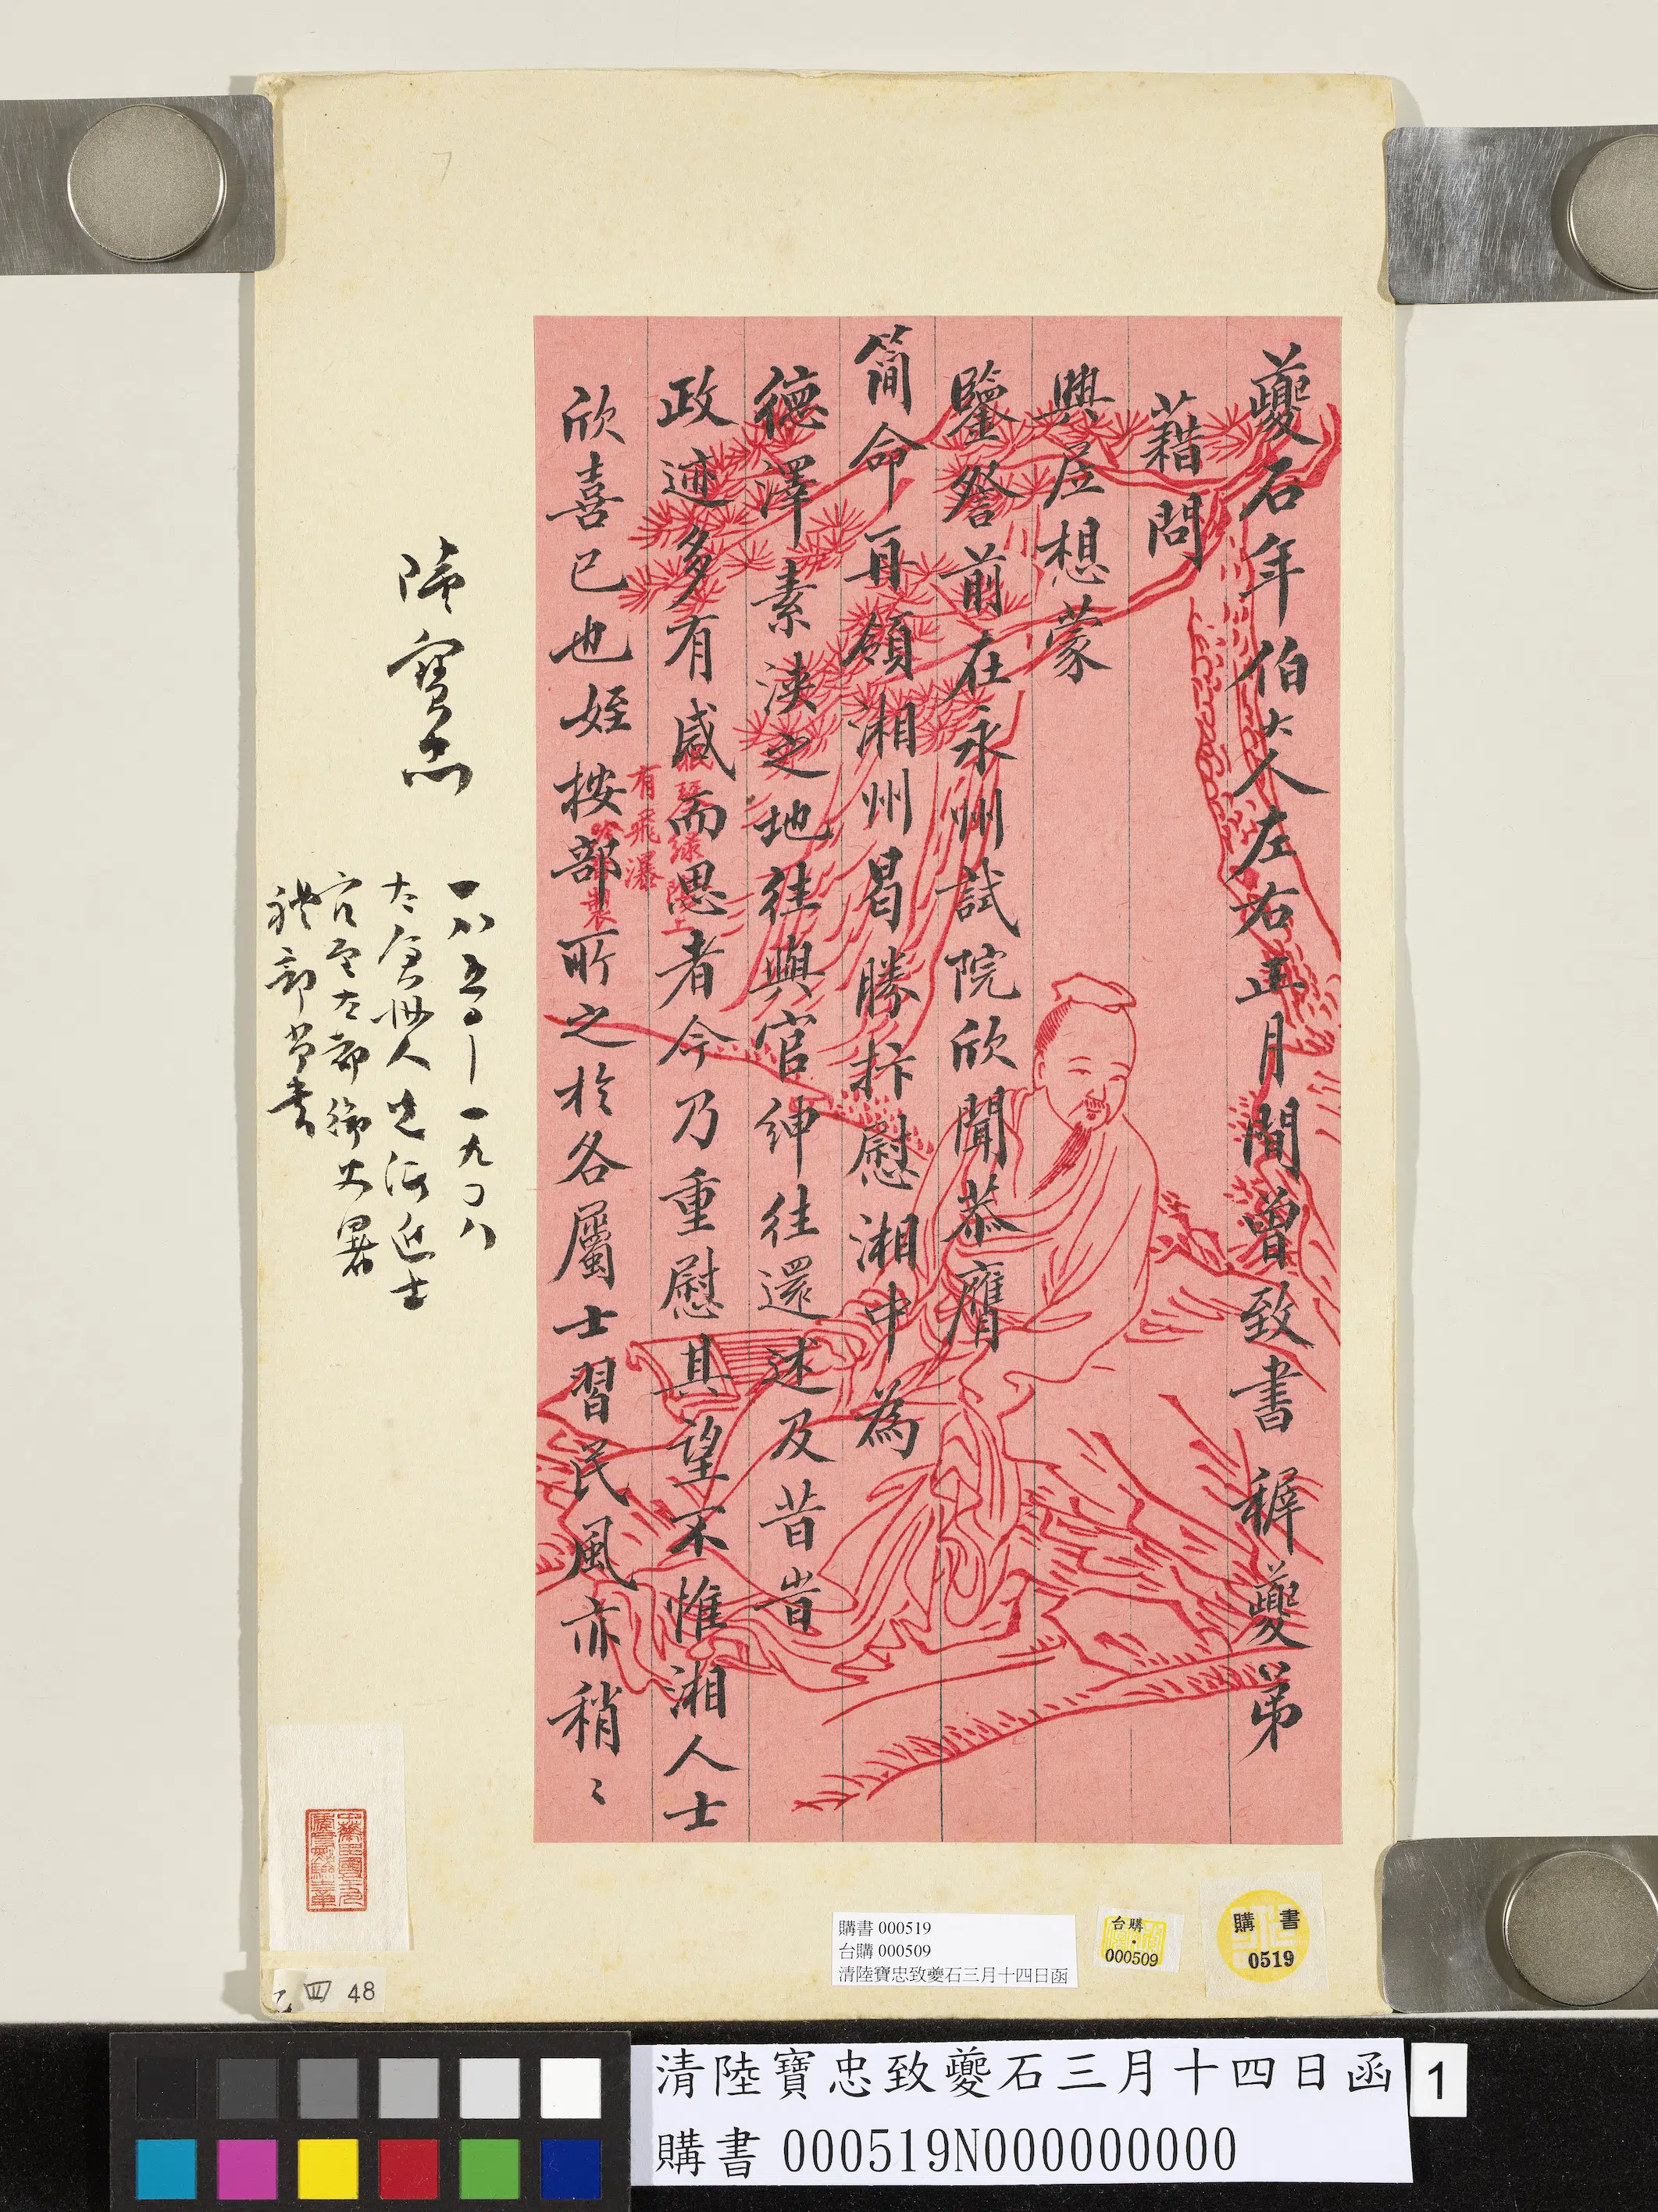 夔石年伯大人左右正月間曾致書穉夔弟
藉問
興居想蒙
鑒詧前在永州試院欣聞恭膺
簡命再領湘州曷勝抃慰湘中為
德澤素浹之地往與官紳往還述及昔時
政迹多有感而思者今乃重慰其望不惟湘人士
欣喜已也姪按部所之於各屬士習民風亦稍〻
有飛瀑
陸寶忠
一八五〇—一九〇八
太倉州人光緒進士
官至左都御史署
禮部尚書
購書 000519
台購 000509
清陸寶忠致夔石三月十四日函
台購
000509
購書
0519
乙 四 48
清陸寶忠致夔石三月十四日函
1
購書 000519N000000000